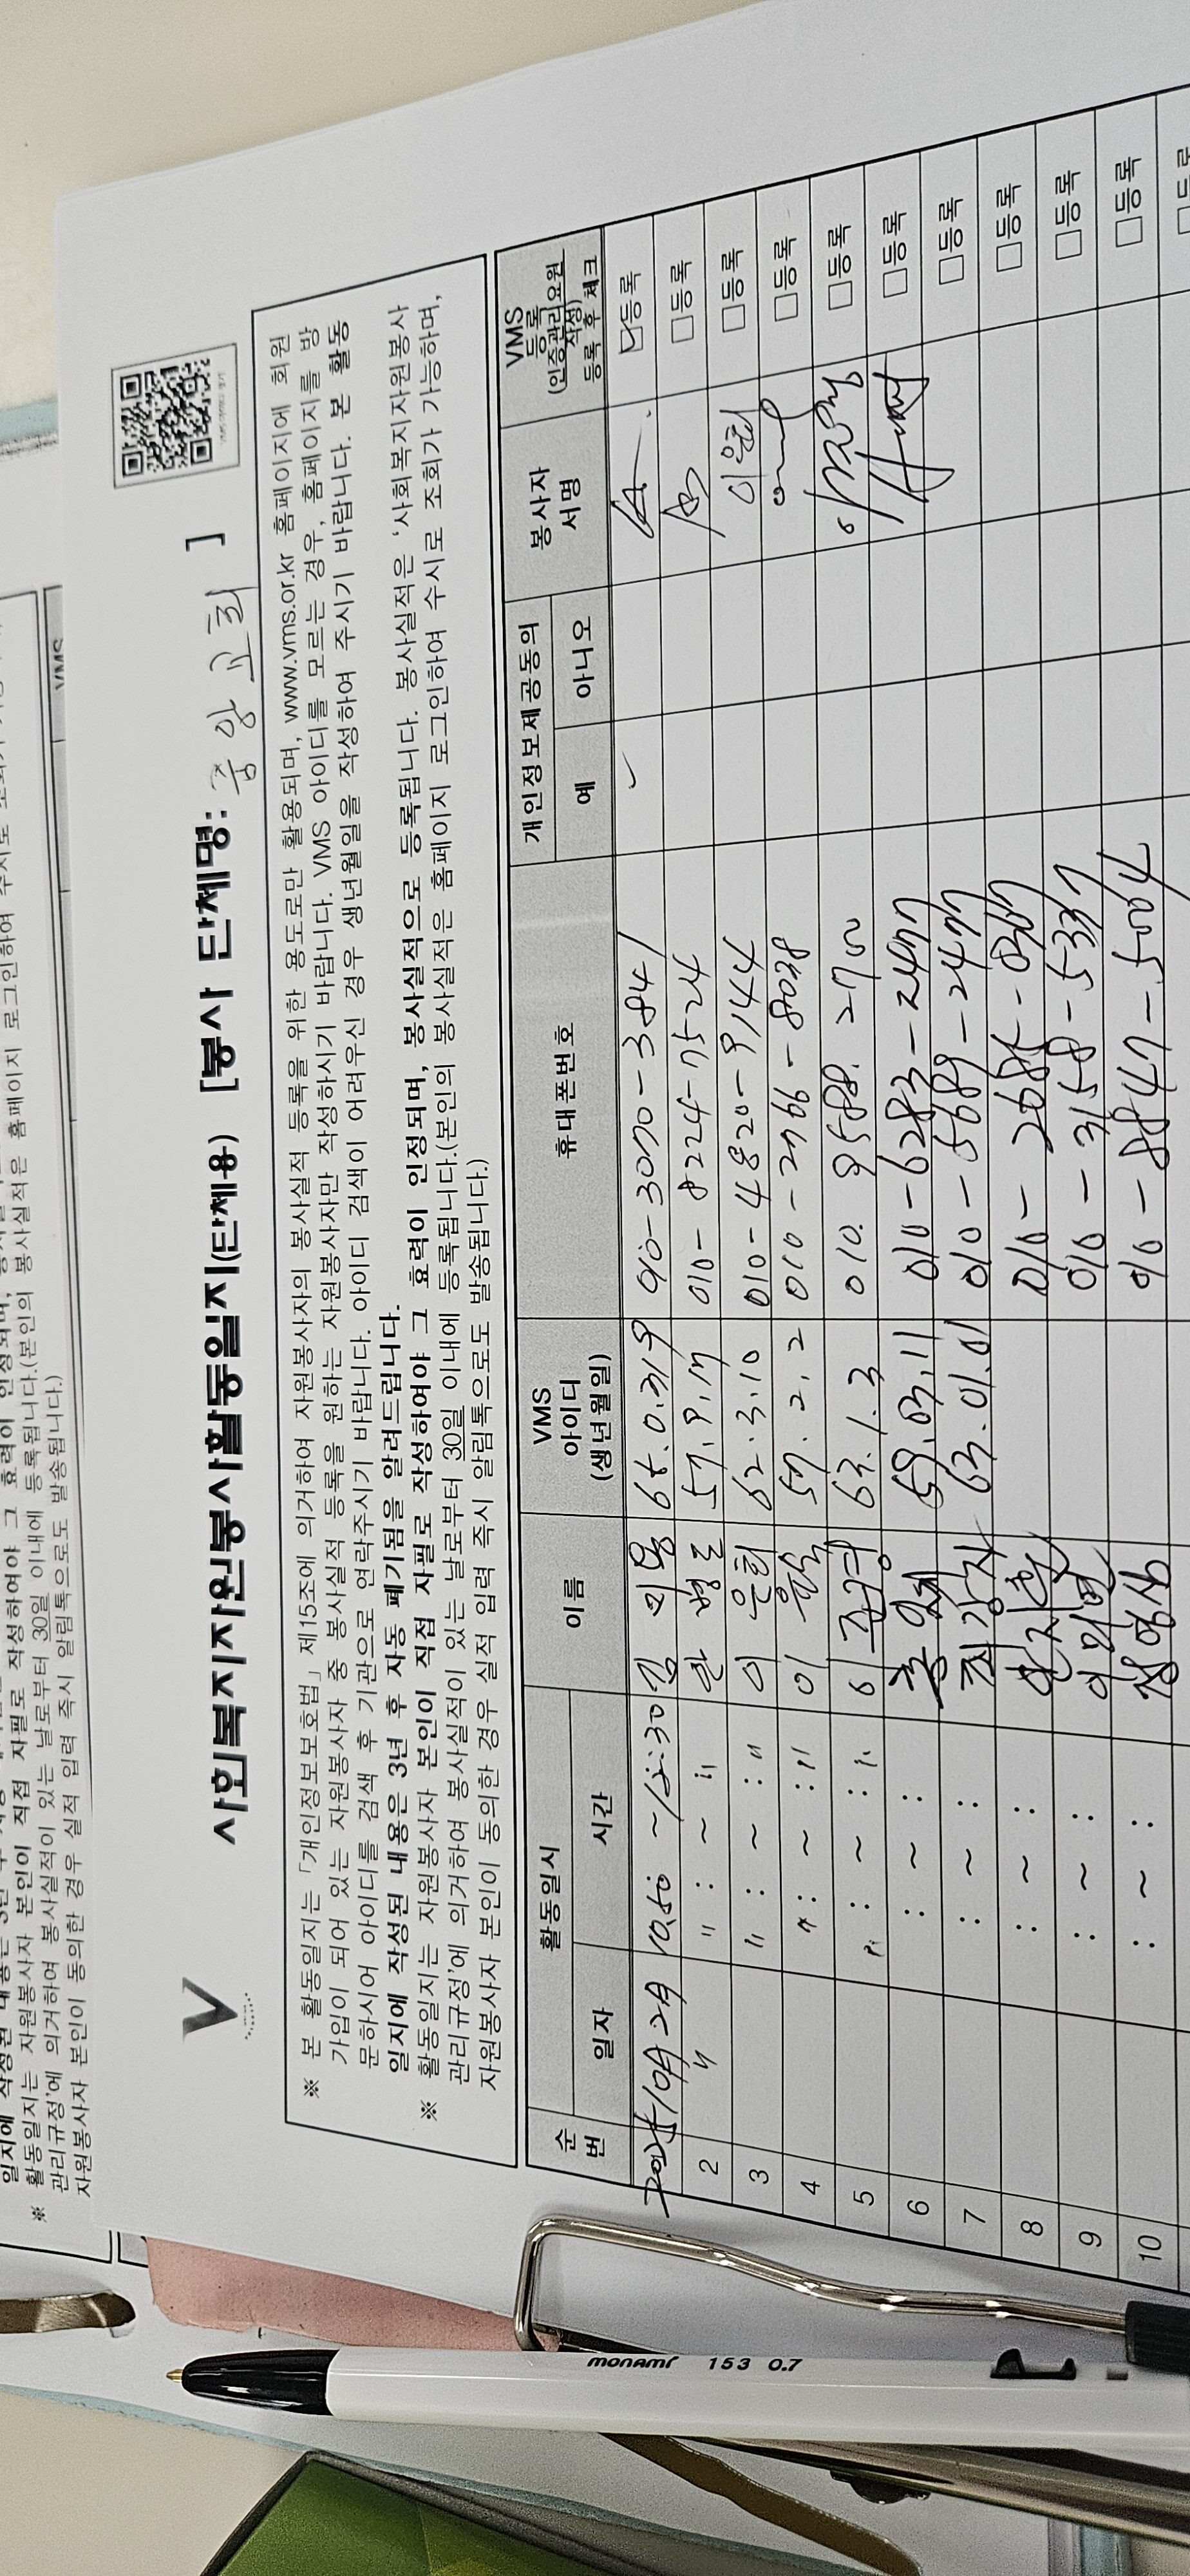 사회복지자원봉사활동일지(단체용) [봉사 단체명: 중앙교회 ]
※ 본 활동일지는 「개인정보보호법」 제15조에 의거하여 자원봉사자의 봉사실적 등록을 위한 용도로만 활용되며, www.vms.or.kr 홈페이지에 회원
가입이 되어 있는 자원봉사자 중 봉사실적 등록을 원하는 자원봉사자만 작성하시기 바랍니다. VMS 아이디를 모르는 경우, 홈페이지를 방
문하시어 아이디를 검색 후 기관으로 연락주시기 바랍니다. 아이디 검색이 어려우신 경우 생년월일을 작성하여 주시기 바랍니다. 본 활동
일지에 작성된 내용은 3년 후 자동 폐기됨을 알려드립니다.
※ 활동일지는 자원봉사자 본인이 직접 자필로 작성하여야 그 효력이 인정되며, 봉사실적으로 등록됩니다. 봉사실적은 '사회복지자원봉사
관리규정'에 의거하여 봉사실적이 있는 날로부터 30일 이내에 등록됩니다.(본인의 봉사실적은 홈페이지 로그인하여 수시로 조회가 가능하며,
자원봉사자 본인이 동의한 경우 실적 입력 즉시 알림톡으로도 발송됩니다.)
순번 활동일시 이름 VMS 아이디 (생년월일) 휴대폰번호 개인정보제공동의 봉사자 서명 VMS 등록 (인증관리요원 작성) 등록 후 체크
일자 시간 예 아니오
10월 2일 10:50 ~ 12:30 김미용 65.0.319 010-3070-3841 ✓ ☑등록
2 〃 〃 : ~ : 〃 57.9.17 010-8224-7524 □등록
3 〃 : ~ : 〃 이은희 62.3.10 010-4820-9144 이은희 □등록
4 〃 : ~ : 〃 57.2.2 010-2766-8028 □등록
5 〃 : ~ : 〃 63.1.3 010.9588.2700 □등록
6 : ~ : 59.03.11 010-6283-2477 □등록
7 : ~ : 최강자 63.01.01 010-5689-2477 □등록
8 : ~ : 010-2685-0307 □등록
9 : ~ : 010-3158-5337 □등록
10 : ~ : 정영상 010-8847-5004 □등록
□등록
monami 153 0.7